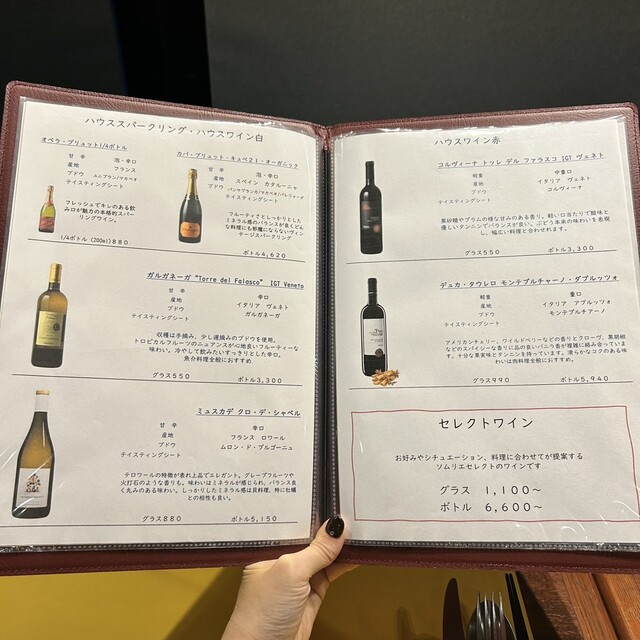 ハウススパークリング・ハウスワイン白
オペラ・ブリュット1/4ボトル
甘 辛 泡・辛口
産地 フランス
ブドウ ユニブラン/マカベオ
テイスティングシート
フレッシュでキレのある飲
み口が魅力の本格的スパー
リングワイン。
1/4ボトル (200ml) 880
カバ・ブリュット・キュベ21・オーガニック
甘 辛 泡・辛口
産地 スペイン カタルーニャ
ブドウ
テイスティングシート
フルーティさとしっかりとした
ミネラル感のバランスが良くどん
な料理にも邪魔にならないヴィン
テージスパークリング
ボトル4,620
ガルガネーガ "Torre del Falasco" IGT Veneto
甘 辛 辛口
産地 イタリア ヴェネト
ブドウ ガルガネーガ
テイスティングシート
収穫は手摘み、少し遅摘みのブドウを使用。
トロピカルフルーツのニュアンスが心地良いフルーティーな
味わい。冷やして飲みたいすっきりとした辛口。
魚介料理全般におすすめ
グラス550 ボトル3,300
ミュスカデ クロ・デ・シャペル
甘 辛 辛口
産地 フランス ロワール
ブドウ ムロン・ド・ブルゴーニュ
テイスティングシート
テロワールの特徴が表れ上品でエレガント。グレープフルーツや
火打石のような香りも。味わいはミネラルが感じられ、バランス良
く丸みのある味わい。しっかりしたミネラル感は貝料理、特に牡蠣
との相性も良い。
グラス880 ボトル5,150
ハウスワイン赤
コルヴィーナ トッレ デル ファラスコ IGT ヴェネト
軽重 中重口
産地 イタリア ヴェネト
ブドウ コルヴィーナ
テイスティングシート
黒砂糖やプラムの様な甘みのある香り。軽い口当たりで酸味と
優しいタンニンでバランスが良い。ぶどう本来の味わいを表現
し、幅広い料理と合わせれます。
グラス550 ボトル3,300
デュカ・タウレロ モンテプルチャーノ・ダブルッツォ
軽重 重口
産地 イタリア アブルッツォ
ブドウ モンテプルチアーノ
テイスティングシート
アメリカンチェリー、ワイルドベリーなどの香りとクローヴ、黒胡椒
などのスパイシーな香りに品の良いバニラ香が複雑に絡み合っていま
す。十分な果実味とタンニンを持っています。滑らかなコクのある味
わいは肉料理全般におすすめ。
グラス990 ボトル5,940
セレクトワイン
お好みやシチュエーション、料理に合わせてが提案する
ソムリエセレクトのワインです
グラス 1,100～
ボトル 6,600～